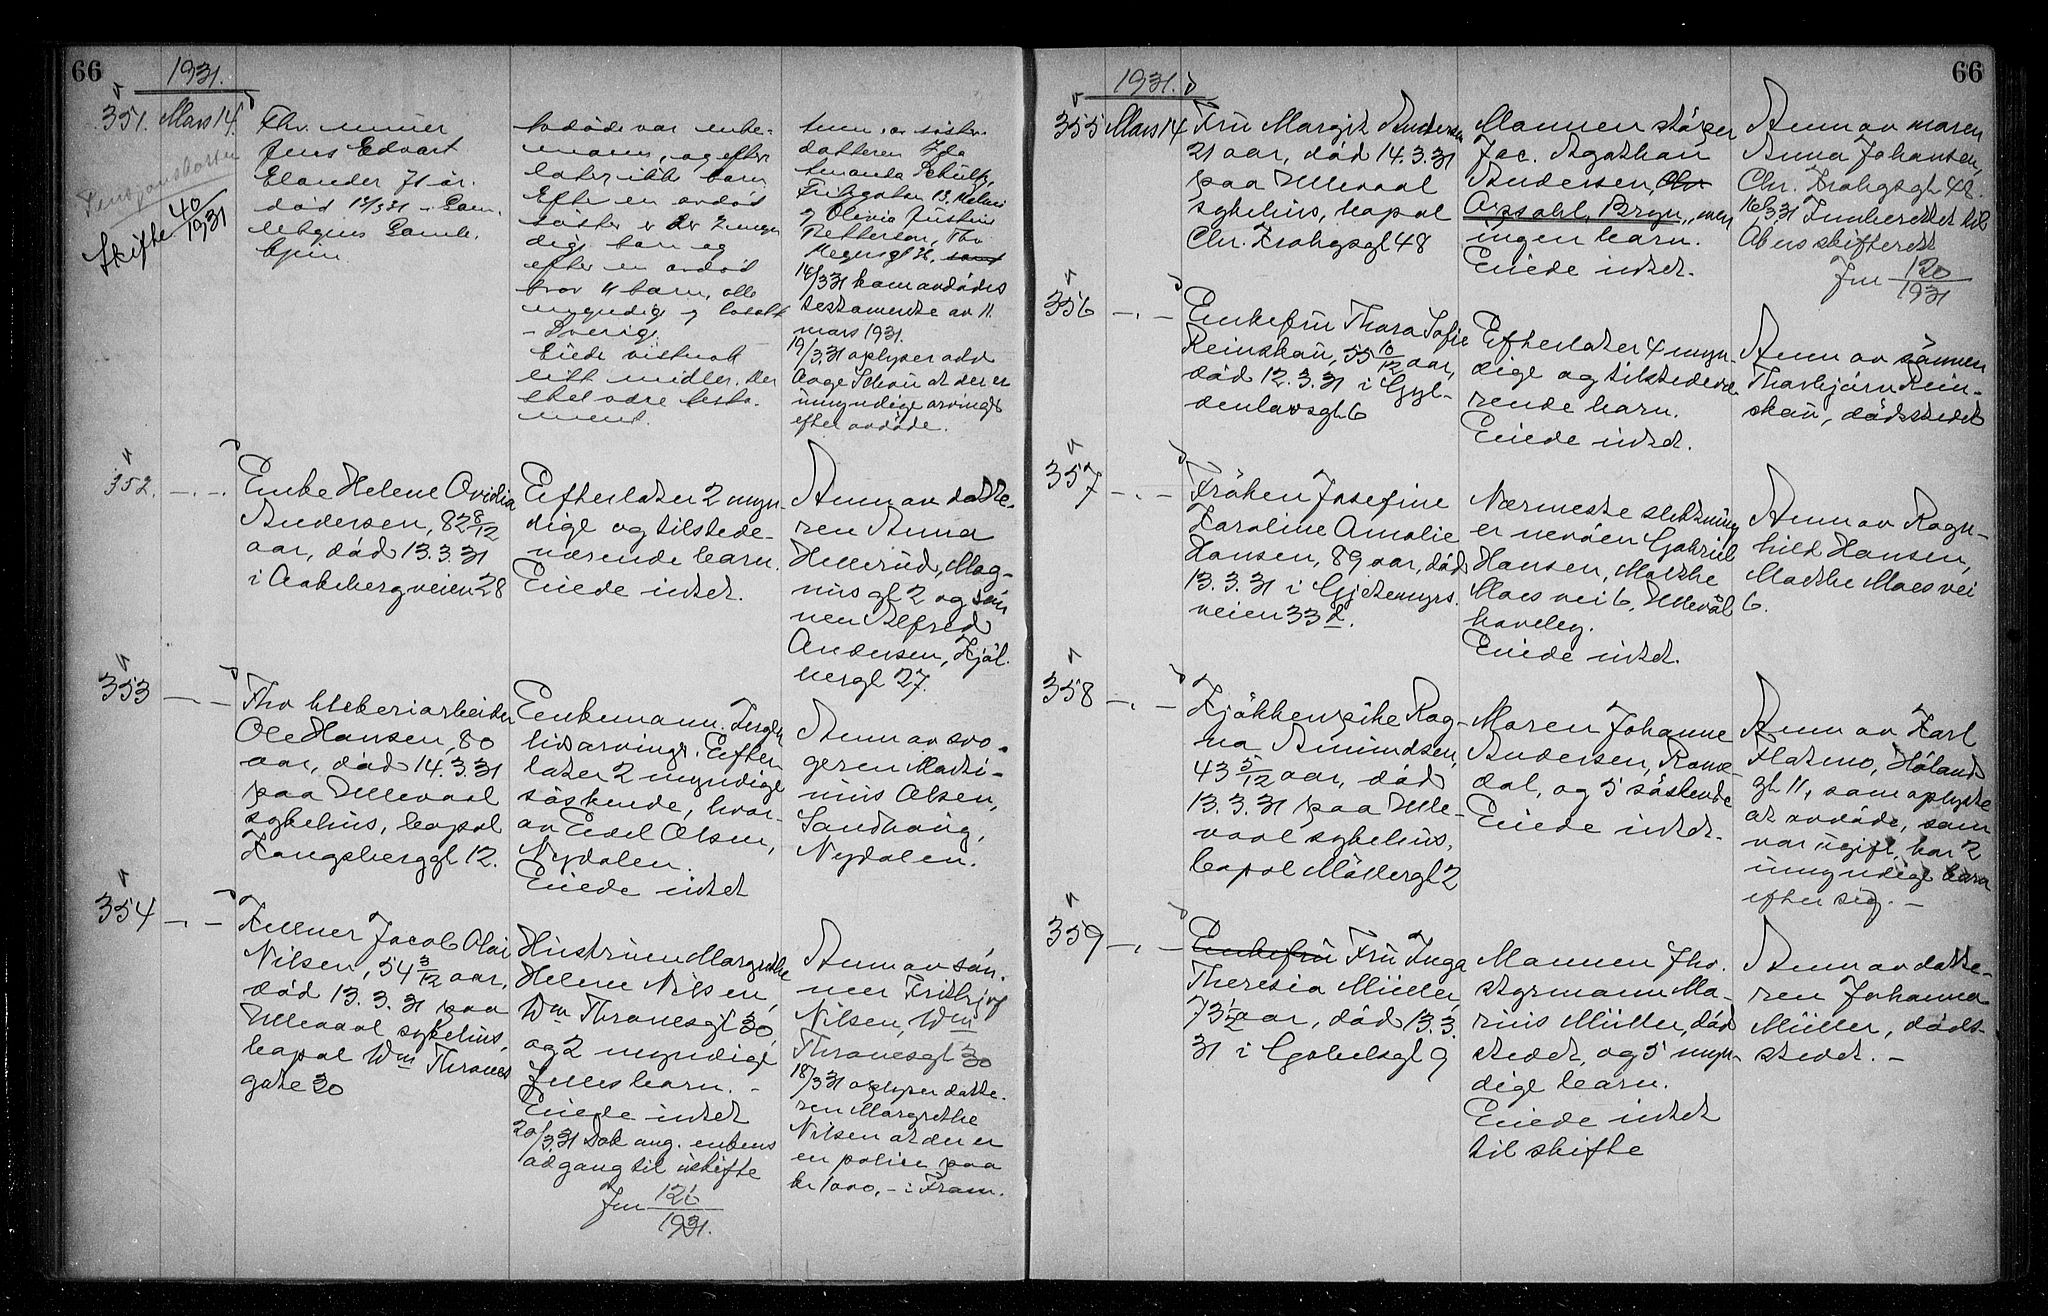 66
1931.
351. Mars 14.
Skifte 40/1931
Fhv. murer
Jens Edvart
Elander 71 år.
død 13/3 31 Gam.
lebyens Gamle.
hjem
Avdøde var enke-
mann, og efter-
later ikke barn
Efter en avdød
søster er der 2 myn
dige barn og
efter en avdød
bror 4 barn, alle
myndige og bosatt
i Sverige.
Eiede visstnok
litt midler. Der
skal være testa-
ment.
Anm. av søster-
datteren Ida
Amanda Schultz,
og Olivia Justine
Petterson, Thv
Meyersgt
14/3 31 kom avdødes
testamente av 11
mars 1931.
19/3.31 oplyser adv
Aage Schou at der er
umyndige arvinger
efter avdøde.
352. -.-.
Enke Helene Ovidia
Andersen, 82 8/12
aar, død 13.3.31
i Aakebergveien 28
Efterlater 2 myn-
dige og tilstede-
værende barn.
Eiede intet.
Anm av datte-
ren Anna
Hellerud, Mag-
nus gt 2 og søn
nen Alfred
Andersen, Kjøl-
bergt 27.
353 -.-
Fhv bleker iarbeider
Ole Hansen, 80
aar, død 14.3.31
paa Ullevaal
sykehus, bopæl
Kongsberggt 12.
Enkemann. Ingen
livsarvinger. Efter-
later 2 myndige
søskende, hvor-
av Emil Olsen,
Nydalen.
Eiede intet
Anm av svo-
geren Marti-
nius Olsen,
Sandhaug,
Nydalen.
354 -.-
Kullner Jacob Olai
Nilsen, 54 3/12 aar,
død 13.3.31 paa
Ullevaal sykehus,
bopæl Wm Thranes
gate 30
Hustruen Margrethe
Helene Nilsen,
Wm Thranesgt 30,
og 2 myndige
fellesbarn.-
Eiede intet
20/3.31 Dok ang. enkens
adgang til uskifte
Jnr 126/1931.
Anm av søn-
nen Frithjof
Nilsen, Wm
Thranesgt 30
18/3 31 oplyser datte-
ren Margrethe
Nilsen at der er
en police paa
kr 1000,- i Fram.
66
1931.
355 Mars 14
Fru Margit Andersen
21 aar, død 14.3.31
paa Ullevaal
sykehus, bopæl
Chr. Krohgsgt 48
Mannen støper
Jac. Agathon
Andersen, Chr
Opsahl, Bryn, men
ingen barn.
Eiede intet.
Anm av moren
Anna Johansen,
Chr. Krohgsgt 48.
16/3 31 Innberettet til
Akers skifterett
Jnr 120/1931
356 -.-
Enkefru Thora Sofie
Reinskau, 55 10/12 aar,
død 12.3.31 i Gyl-
denløvsgt 6
Efterlater 4 myn-
dige og tilstedevæ
rende barn.
Eiede intet.
Anm av sønnen
Thorbjørn Rein-
skau, dødsstedet
357 -.-
Frøken Josefine
Karoline Amalie
Hansen, 89 aar, død
13.3.31 i Gjetemyrs.
veien 33 d.
Nærmeste slektning
er nevøen Gabriel
Hansen, Marthe
Maes vei 6, Ullevål
haveby.
Eiede intet.
Anm av Ragn-
hild Hansen,
Marthe Maes vei
6.
358 -.-
Kjøkkenpike Rag-
na Amundsen,
43 5/12 aar, død
13.3.31 paa Ulle-
vaal sykehus,
bopæl Møllergt 2
Moren Johanne
Andersen, Roms-
dal, og 5 søskende
Eiede intet.
Anm av Karl
Flatmo, Høland-
gt 11, som oplyste
at avdøde, som
var ugift, har 2
umyndige barn
efter sig. -
359 -.-
Enkefru Fru Inga
Theresia Müller
73 1/2 aar, død 13.3.
31 i Gabelsgt 9
Mannen fhv.
styrmann Ma-
rius Müller, død
stedet, og 5 myn-
dige barn.
Eiede intet
til skifte
Anm av datte-
ren Johanna
Müller, døds-
stedet. -